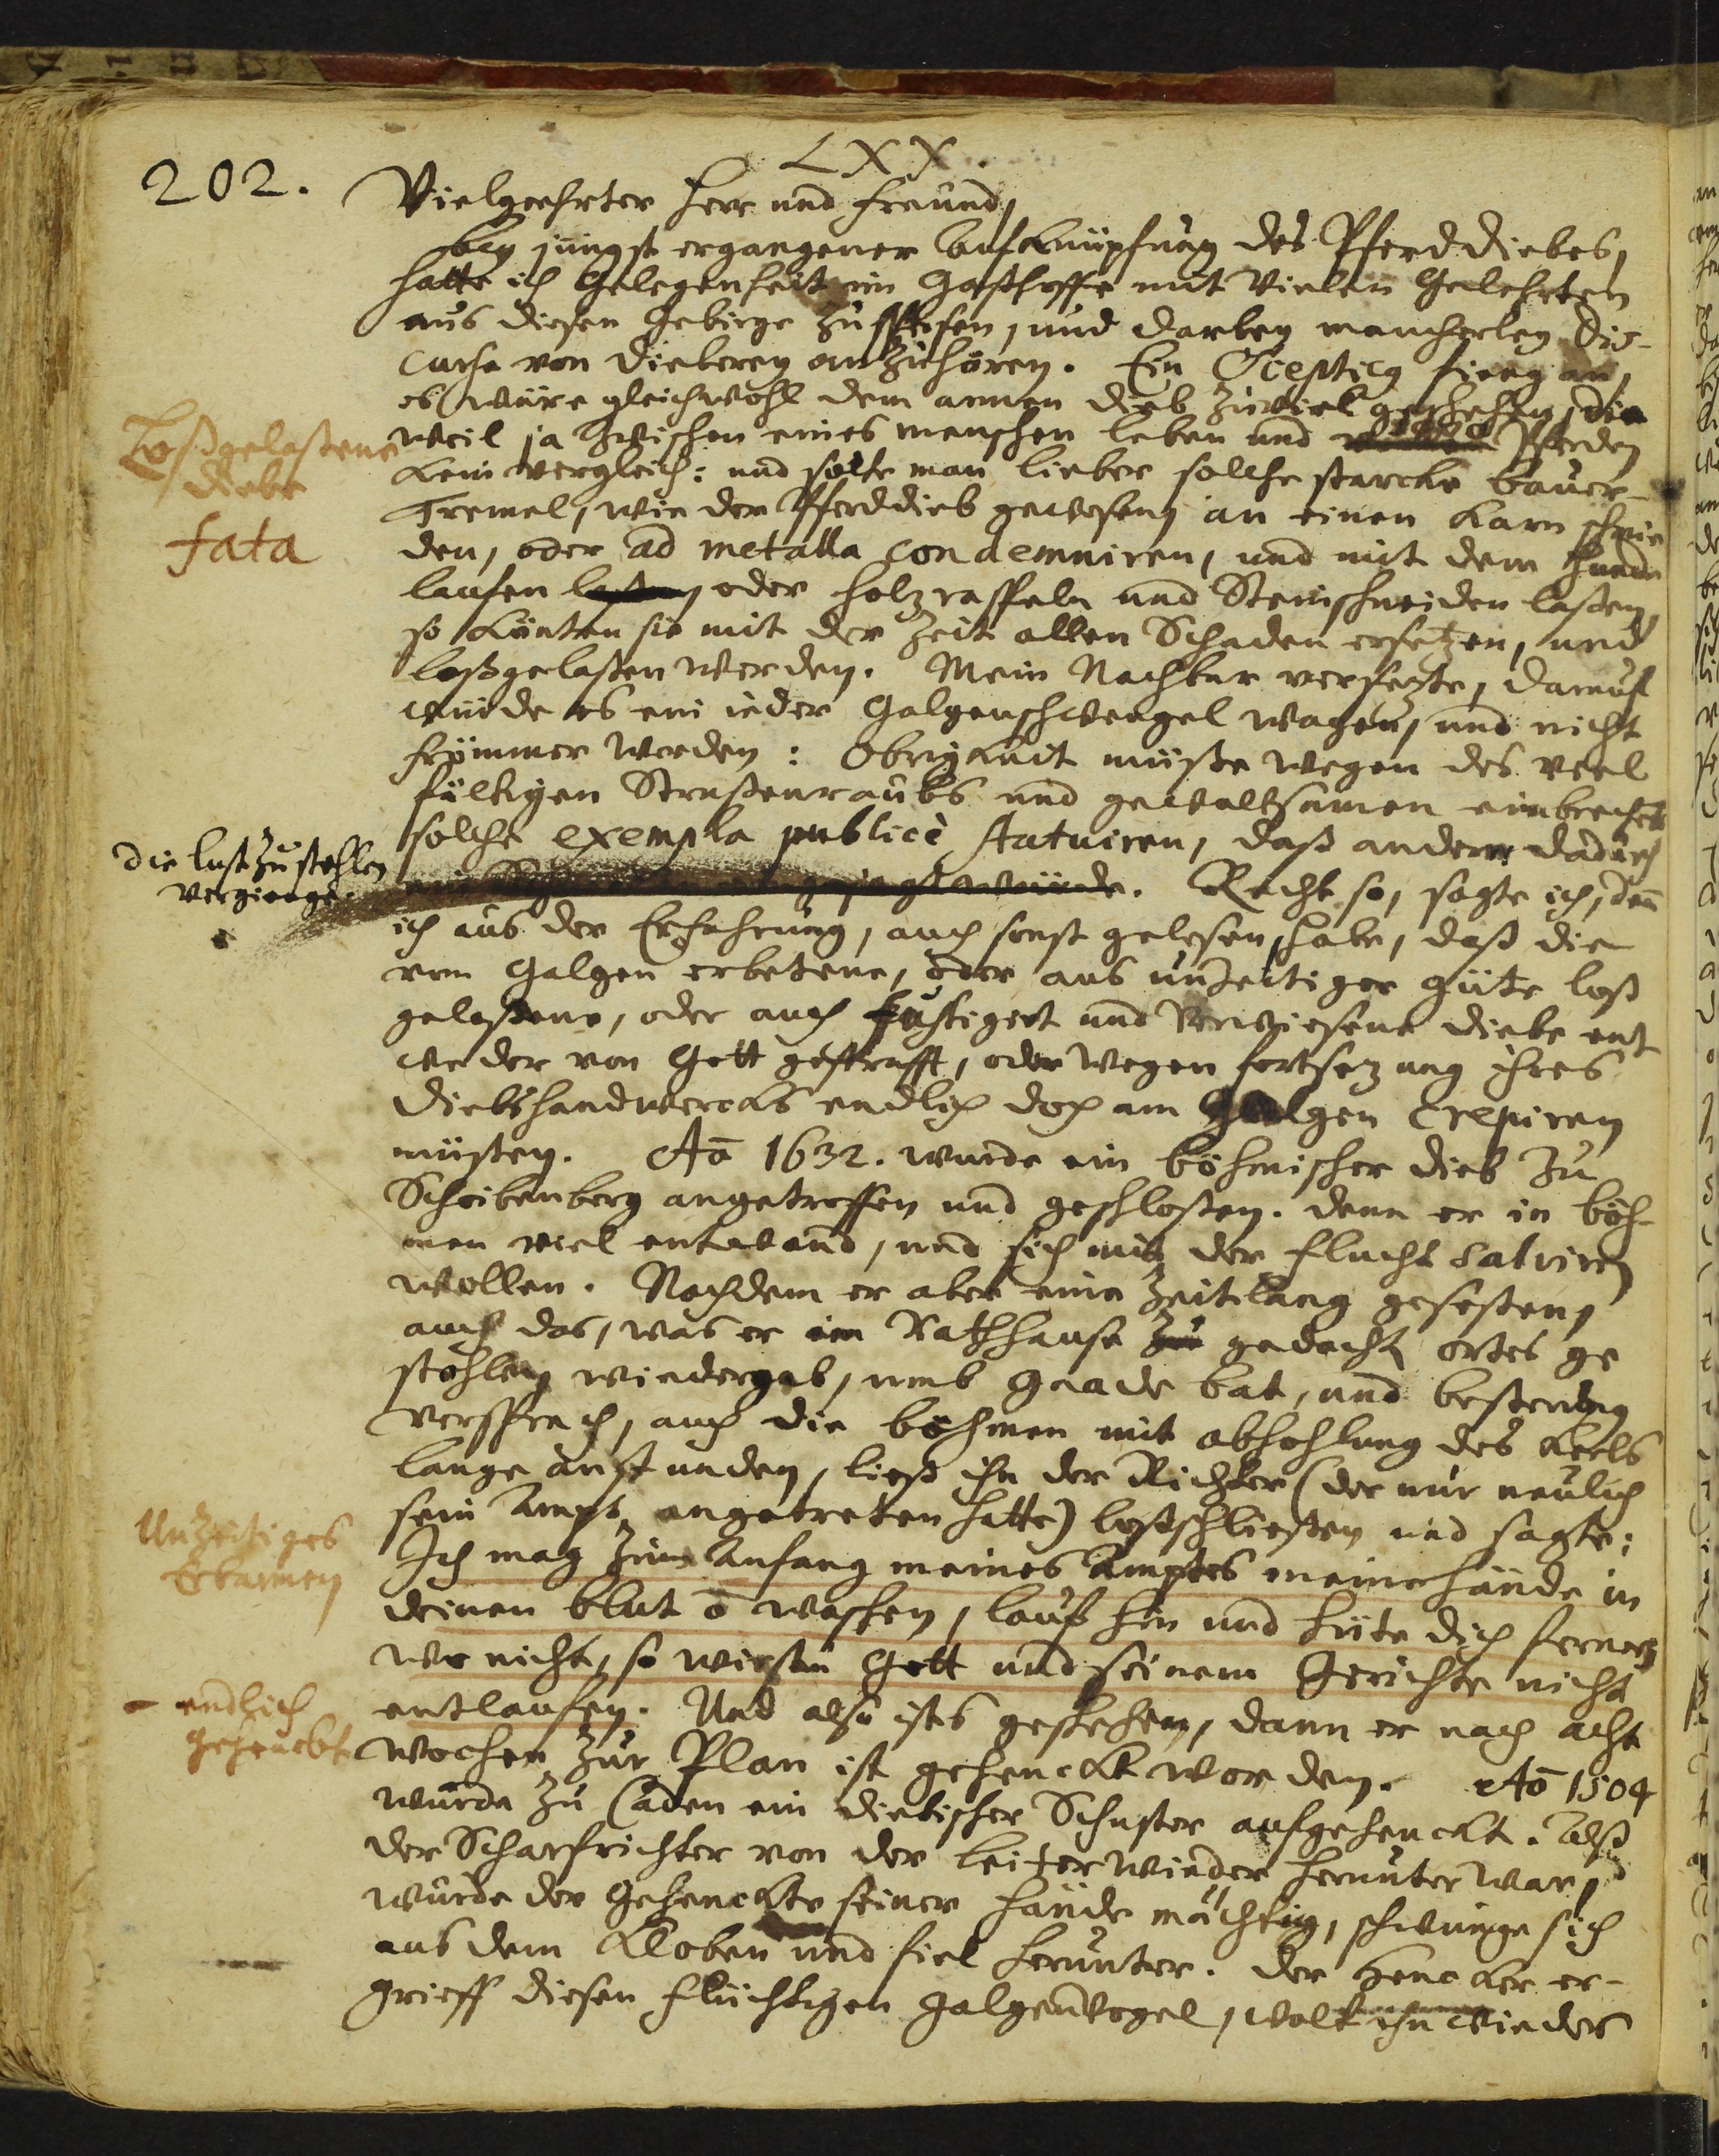 LXX.
202.
Vielgeehrter Herr und Freund,
bey jüngst ergangener aufknüpfung des Pferddiebes,
hatte ich Gelegenheit im Gasthoffe mit vielen Gelehrten
aus diesen Gebirge zu speisen, und darbey mancherley Dis-
curse von Dieberey anzuhören. Ein Sceptic fieng an,
es wäre gleichwohl dem armen Dieb zuviel geschehen, die
weil ja zwischen eines menschen leben und Pferden
kein vergleich: und solte man lieber solche starcke bauer-
Tremel, wie der Pferddieb gewesen, an einen karn schmie
den, oder ad metalla condemniren, und mit dem Hunde
laufen laßen, oder holz raspeln und Steinschneiden laßen,
so könten sie mit der Zeit allen Schaden ersetzen, und
loßgelaßen werden. Mein Nachbar versezte, darauf
würde es ein ieder Galgenschwengel wagen, und nicht
frömmer werden: Obrigkeit müste wegen des viel
fältigen Straßenraubs und gewaltsamen einbrechens
solche exempla publicè statuiren, daß andern dadurch
ein gejagt würde. Recht so, sagte ich, denn
ich aus der Erfahrung, auch sonst gelesen habe, daß die
vom Galgen erbetene, oder aus unzeitiger güte loß
gelaßene, oder auch fustigirt und verwiesene diebe ent
weder von Gott gestrafft, oder wegen fortsezung ihres
Diebshandwercks endlich doch am Galgen crepiren
müsten. Aō 1632. wurde ein böhmischer dieb zu
Scheibenberg angetroffen und geschloßen. denn er in böh-
men viel entwand, und sich mit der flucht salviren
wollen. Nachdem er aber eine Zeitlang geseßen,
auch das, was er im Rathhause zu gedacht ortes ge
stohlen wiedergab, umb Gnade bat, und beßerung
versprach, auch die böhmen mit abhohlung des kerls
lange anstunden, ließ ihn der Richter (der nur neulich
sein Ampt angetreten hatte) loßschließen und sagte:
Ich mag zum Anfang meines Amptes meine hände in
deinen blut ō waschen, lauf hin und hüte dich ferner,
wo nicht, so wirstu Gott und seinem Gerichte nicht
entlaufen. Und also ists geschehen, dann er nach acht
wochen zur Plan ist gehenckt worden. Aō 1504
wurde zu Caden ein diebischer Schuster aufgehenckt. Alß
der Scharfrichter von der leiter wieder herunter war,
wurde der Gehenckte seiner hände mächtig, schwunge sich
aus dem Kloben und fiel herunter. Der Hencker er-
grieff diesen flüchtigen Galgenvogel, wolt ihn wieder
Loßgelaßene
diebe
fata
die lust zu stehlen
vergienge.
Unzeitiges
Erbarmen
- endlich
gehenckt